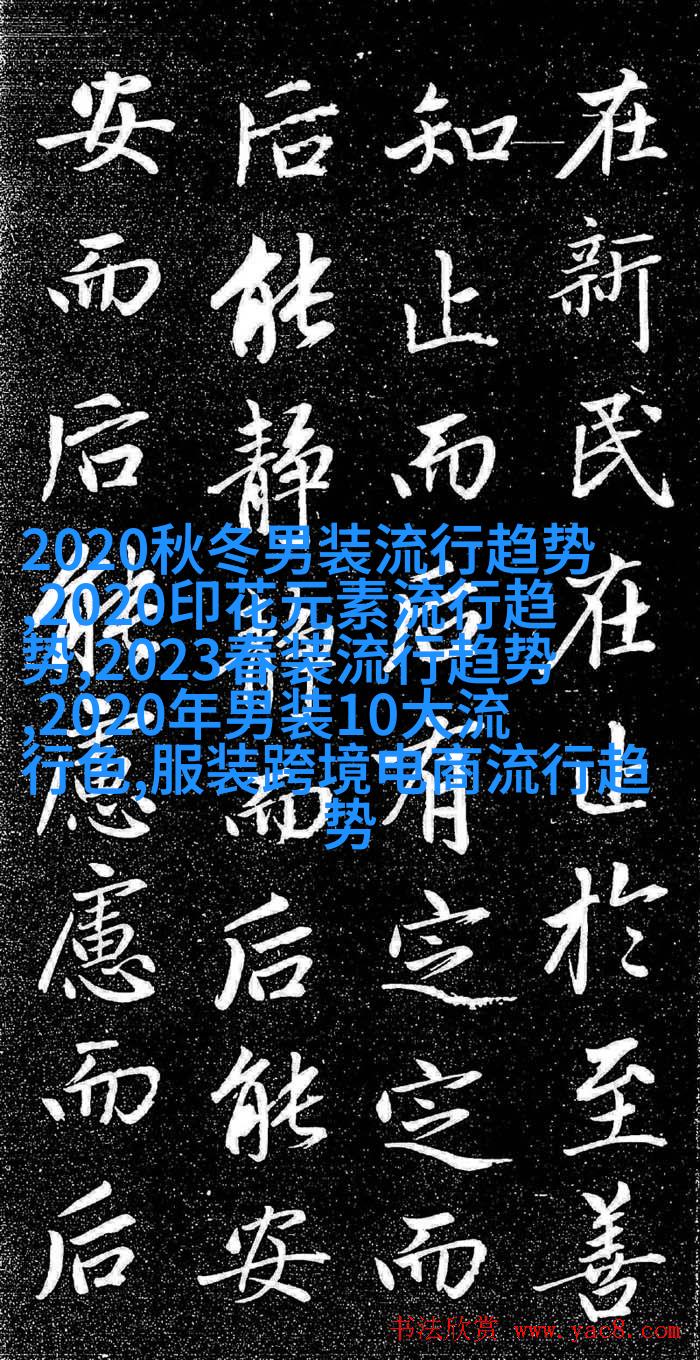 在新民在止於至善
知止而后有定定而
后能静静而后能安
安而后能慮慮而后
2020秋冬男装流行趋势
,2020印花元素流行趋
势,2023春装流行趋势
,2020年男装10大流
行色,服装跨境电商流行趋
势
书法欣赏 www.yac8.com